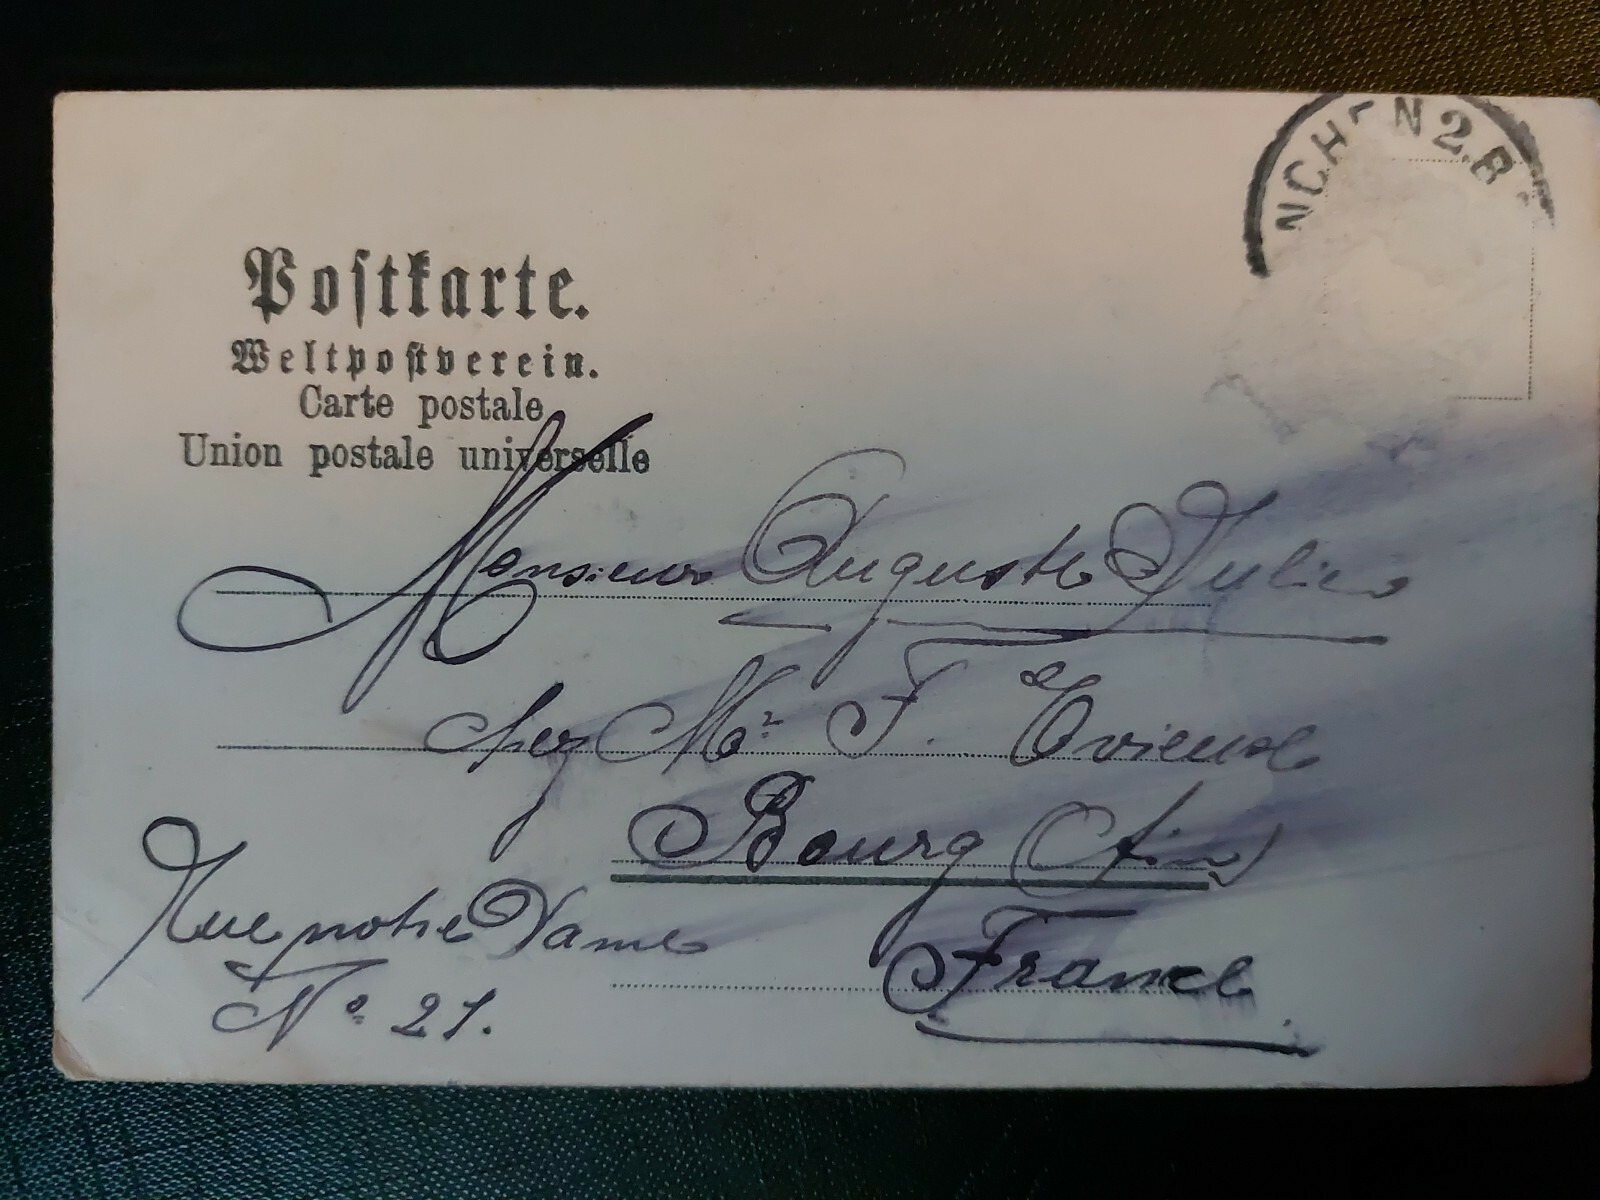 NCHEN 2. B
Postkarte.
Weltpostverein.
Carte postale
Union postale universelle
Monsieur Auguste Julien
chez Mr F.
Bourg (Ain)
Rue notre Dame
France
No 21.